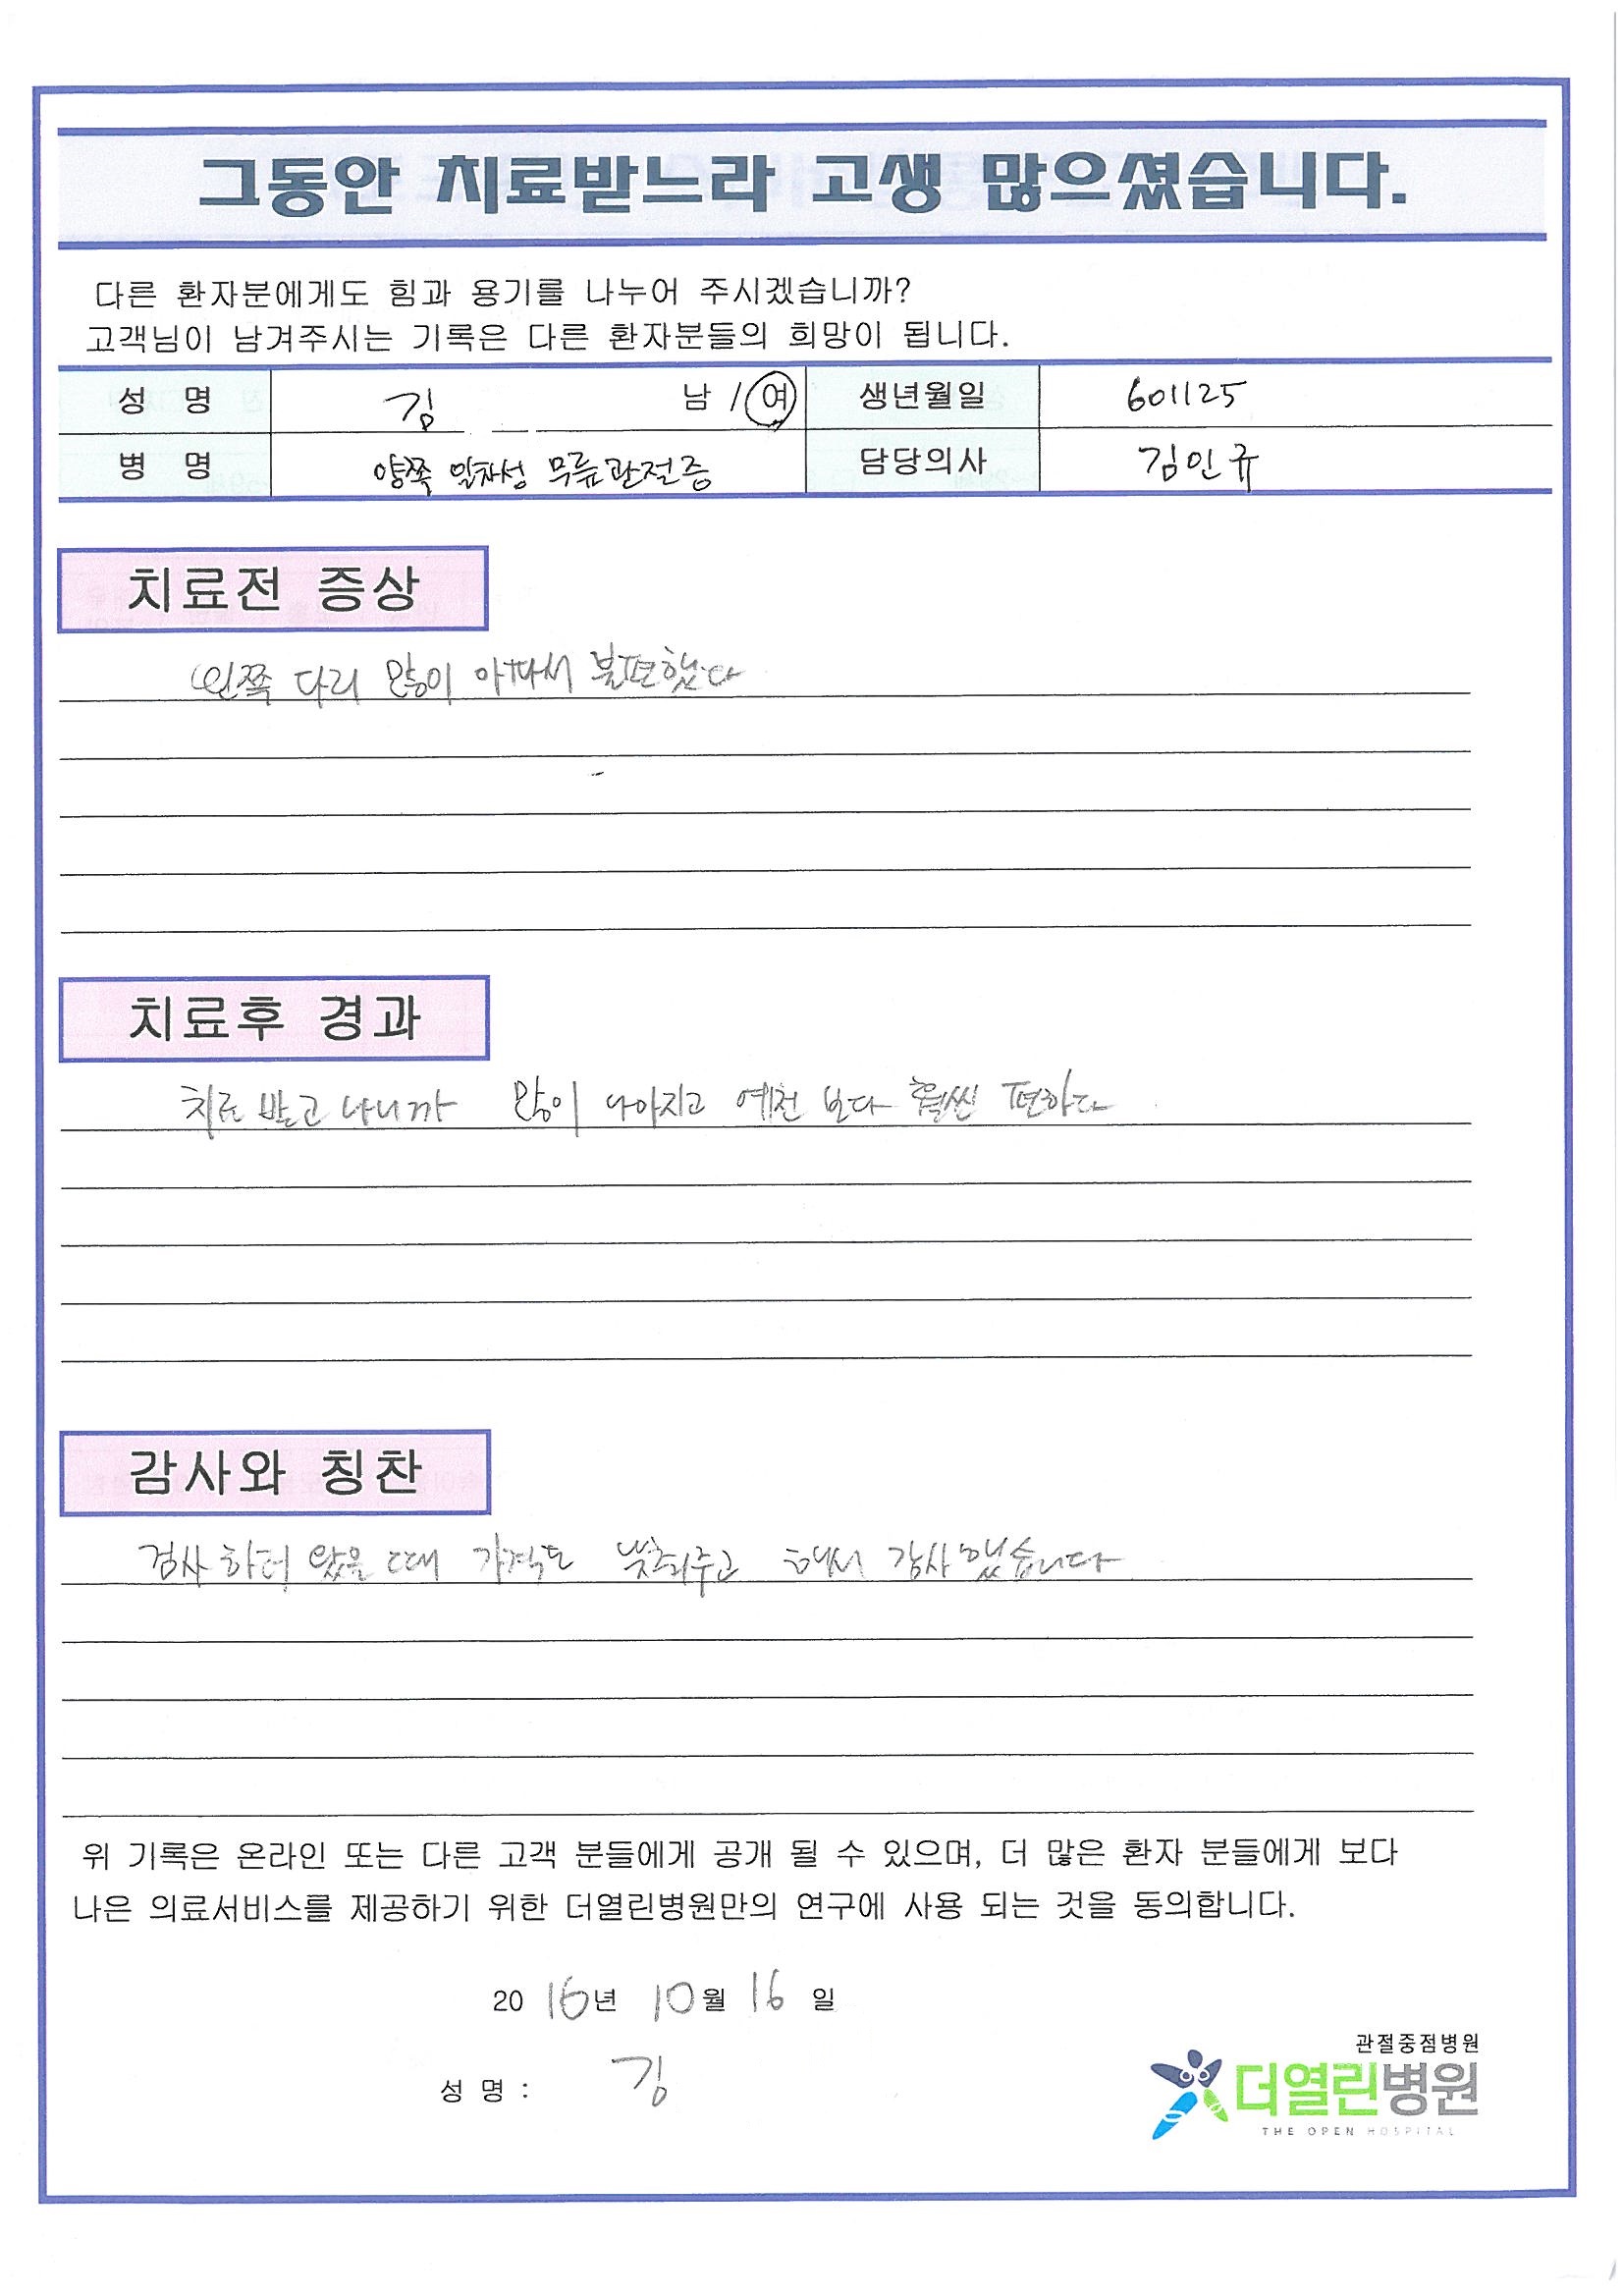 그동안 치료받느라 고생 많으셨습니다.
다른 환자분에게도 힘과 용기를 나누어 주시겠습니까?
고객님이 남겨주시는 기록은 다른 환자분들의 희망이 됩니다.
성 명 김 남 / 여 생년월일 601125
병 명 양쪽 일차성 무릎관절증 담당의사 김인규
치료전 증상
왼쪽 다리 많이 아파서 불편했다
치료후 경과
치료 받고 나니까 많이 나아지고 예전 보다 훨씬 편하다
감사와 칭찬
검사 하러 왔을 때 가격도 낮춰주고 해서 감사했습니다
위 기록은 온라인 또는 다른 고객 분들에게 공개 될 수 있으며, 더 많은 환자 분들에게 보다
나은 의료서비스를 제공하기 위한 더열린병원만의 연구에 사용 되는 것을 동의합니다.
2016년 10월 16일
성 명 : 김
관절중점병원
더열린병원
THE OPEN HOSPITAL